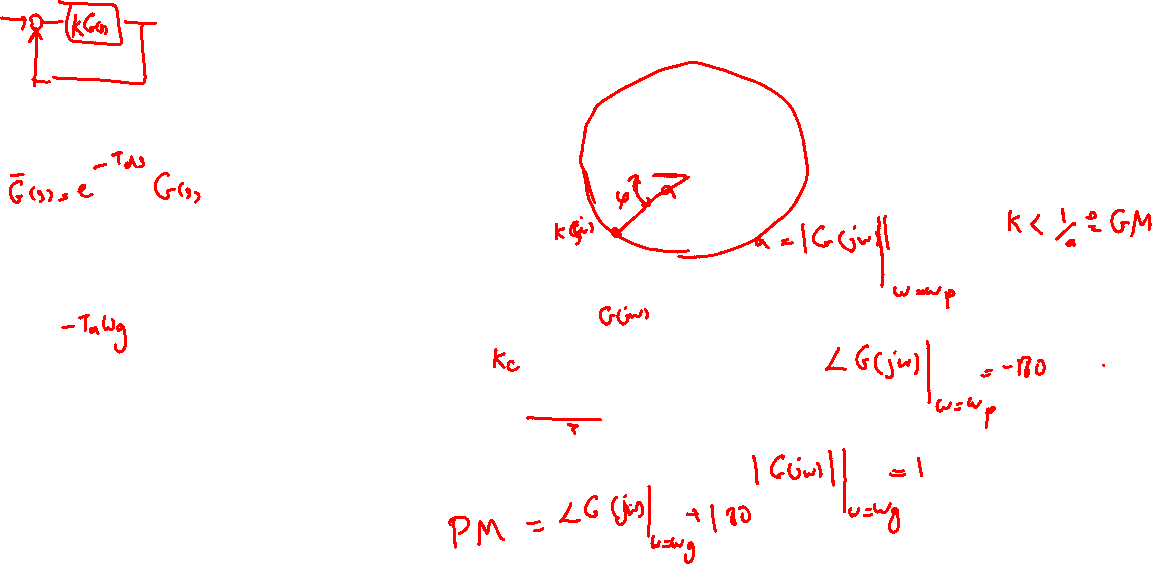 kG(s)
Ḡ(s) = e^{-T_d s} G(s)
φ
k(jω)
a = |G(jω)| |_{ω=ω_p}
K < 1/a ≜ GM
G(jω)
-T_d ω_g
K_c
∠G(jω)|_{ω=ω_p} = -180
|G(jω)| |_{ω=ω_g} = 1
PM = ∠G(jω)|_{ω=ω_g} + 180